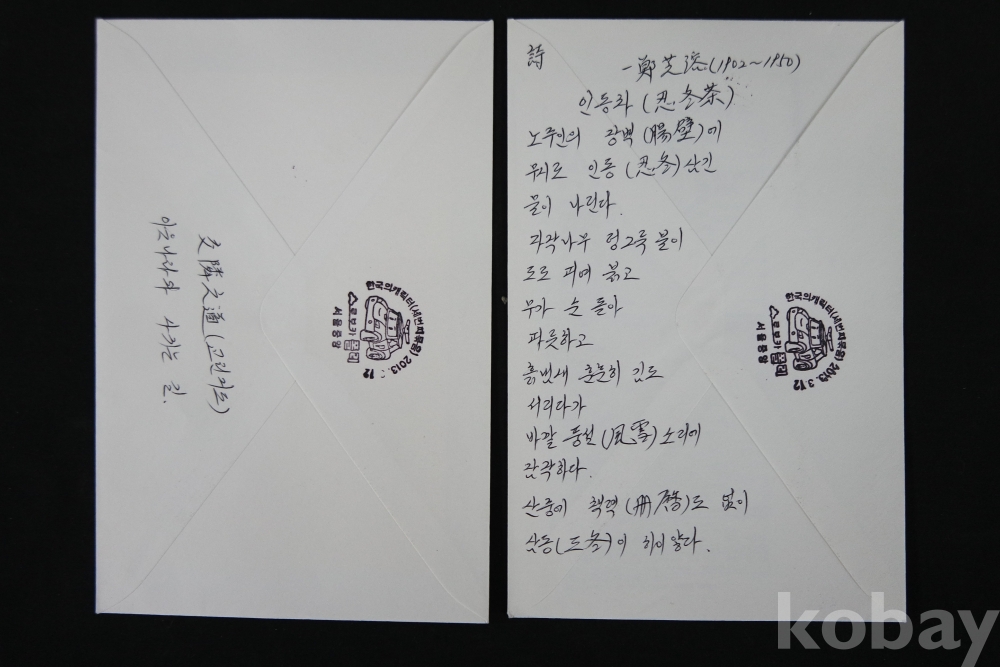 交隣之道(교린지도)
이웃나라와 사귀는 길.
한국의캐릭터(세번째묶음) 2013. 3.12
로보카폴리
서울중앙
詩
-鄭芝溶(1902~1950)
인동차 (忍冬茶)
노주인의 장벽(腸壁)에
무시로 인동(忍冬)삼긴
물이 나린다.
자작나무 덩그륵 불이
도로 피여 붉고
무가 순 돌아
파릇하고
흙냄새 훈훈히 김도
서리다가
바깥 풍설(風雪)소리에
잠착하다.
산중에 책력(冊曆)도 없이
삼동(三冬)이 하이얗다.
한국의캐릭터(세번째묶음) 2013. 3.12
로보카폴리
서울중앙
kobay